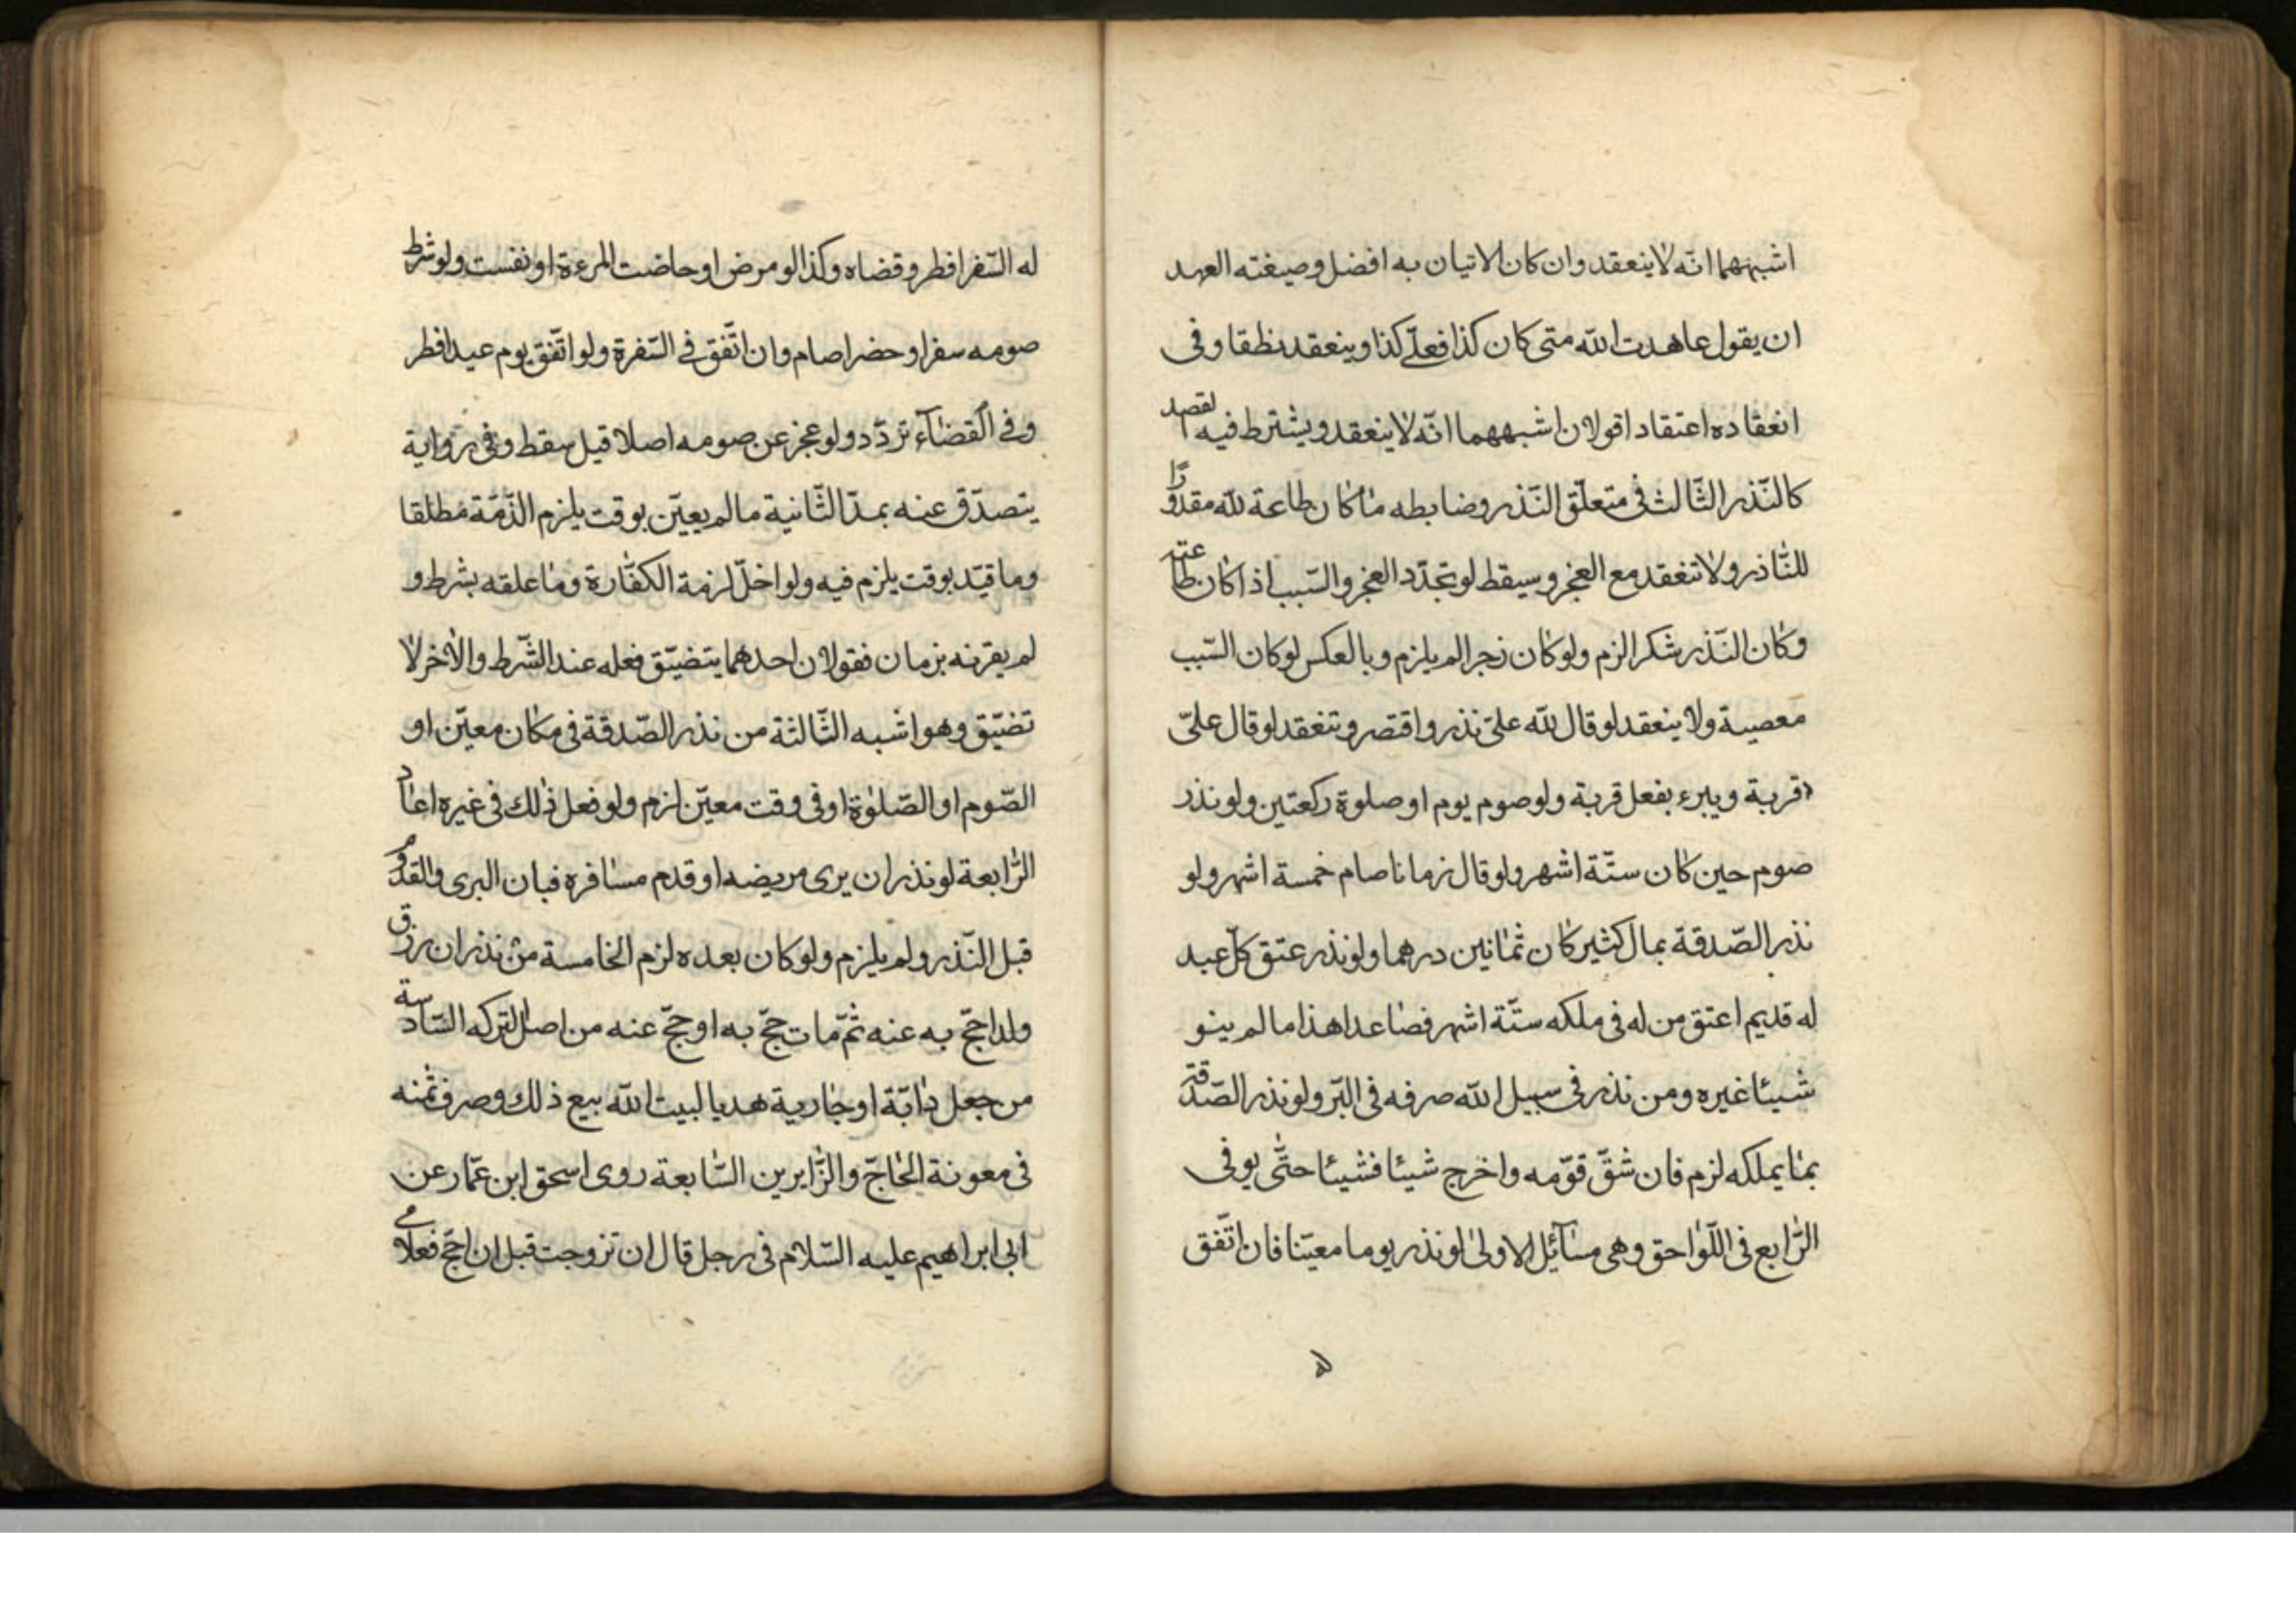 اشبههما انّه لا ينعقد وان كان الاتيان به افضل وصيغته العهد
ان يقول عاهدت الله متى كان كذا فعلّى كذا وينعقد نظقا وفى
انعقاده اعتقاد اقولان اشبههما انّه لا ينعقد ويشترط فيه القصد
كالنّذر الثّالث فى متعلّق النّذر وضابطه ما كان طاعة للّه مقدورًا
للنّاذر ولا تنعقد مع العجز وسيقط لو تجدّد العجز والسّبب اذا كان طاعته
وكان النّذر شكرا لزم ولو كان زجرا لم يلزم وبالعكس لو كان السّبب
معصية ولا ينعقد لو قال للّه علىّ نذر واقتصر وتنعقد لو قال علىّ
قربة ويبرء بفعل قربة ولو صوم يوم او صلوة ركعتين ولو نذر
صوم حين كان ستّة اشهر ولو قال زمانا صام خمسة اشهر ولو
نذر الصّدقة بمال كثير كان ثمانين درهما ولو نذر عتق كلّ عبد
له قديم اعتق من له فى ملكه ستّة اشهر فصاعدا هذا ما لم ينو
شيئا غيره ومن نذر فى سبيل الله صرفه فى البّر ولو نذر الصّدقة
بما يملكه لزم فان شقّ قوّمه واخرج شيئا فشيئا حتّى يوفى
الرّابع فى اللّواحق وهى مسآئل الاولى لو نذر يوما معيّنا فان اتّفق
له السّفر افطر وقضاه وكذا لو مرض او حاضت المرءة او نفست ولو شرط
صومه سفرا وحضرا صام وان اتّفق فى السّفرة ولو اتّفق يوم عيد افطر
وفى القضآء تردّد ولو عجز عن صومه اصلا قيل سقط وفى رواية
يتصدّق عنه بمدّ الثّانية ما لم يعيّن بوقت يلزم الذّمّة مطلقا
وما قيّد بوقت يلزم فيه ولو اخلّ لزمة الكفّارة وما علقه بشرط و
لم يقرنه بزمان فقولان احدهما يتضيّق فعله عند الشّرط والاخر لا
تضيّق وهو اشبه الثّالثة من نذر الصّدقة فى مكان معيّن او
الصّوم او الصّلوة او فى وقت معيّن لزم ولو فعل ذلك فى غيره اعاد
الرّابعة لو نذر ان يرى مريضه او قدم مسافره فبان البرى والقدوم
قبل النّذر ولم يلزم ولو كان بعده لزم الخامسة من نذر ان رزق
ولدا حجّ به عنه ثمّ مات حجّ به او حجّ عنه من اصل التركه السّادسة
من جعل دابّة او جارية هديا لبيت الله بيع ذلك وصرف ثمنه
فى معونة الحاجّ والزّايرين السّابعة روى اسحق ابن عمّار عن
ابى ابراهيم عليه السّلام فى رجل قال ان تزوجت قبل ان احجّ فغلامى